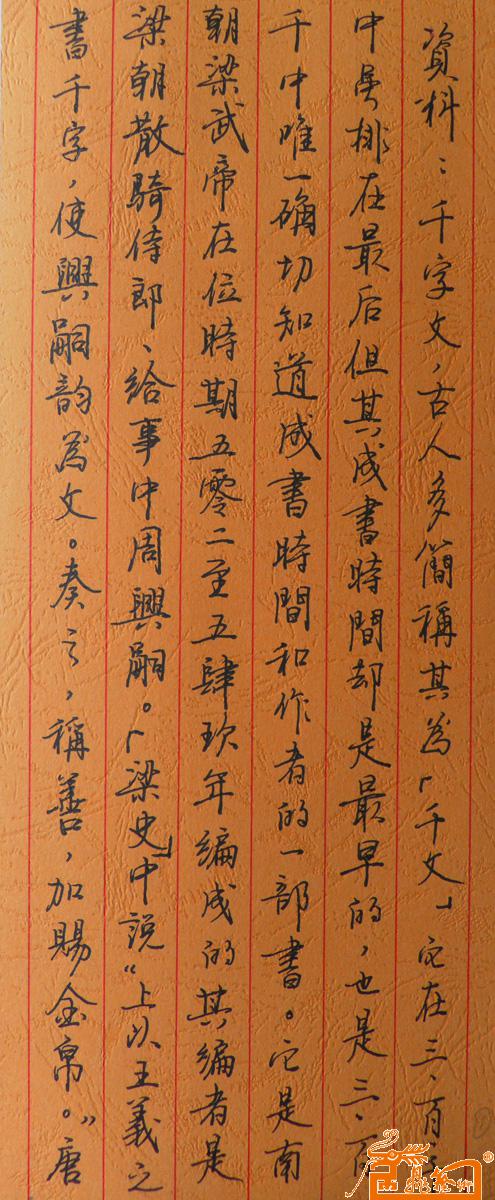 資料：千字文，古人多簡稱其為「千文」它在三、百、
中虽排在最后但其成書時間却是最早的，也是三、百
千中唯一确切知道成書時間和作者的一部書。它是南
朝梁武帝在位時期五零二至五肆玖年編成的其編者是
梁朝散騎侍郎、給事中周興嗣。「梁史」中説“上以王義之
書千字，使興嗣韵為文。奏之，稱善，加賜金帛。”唐